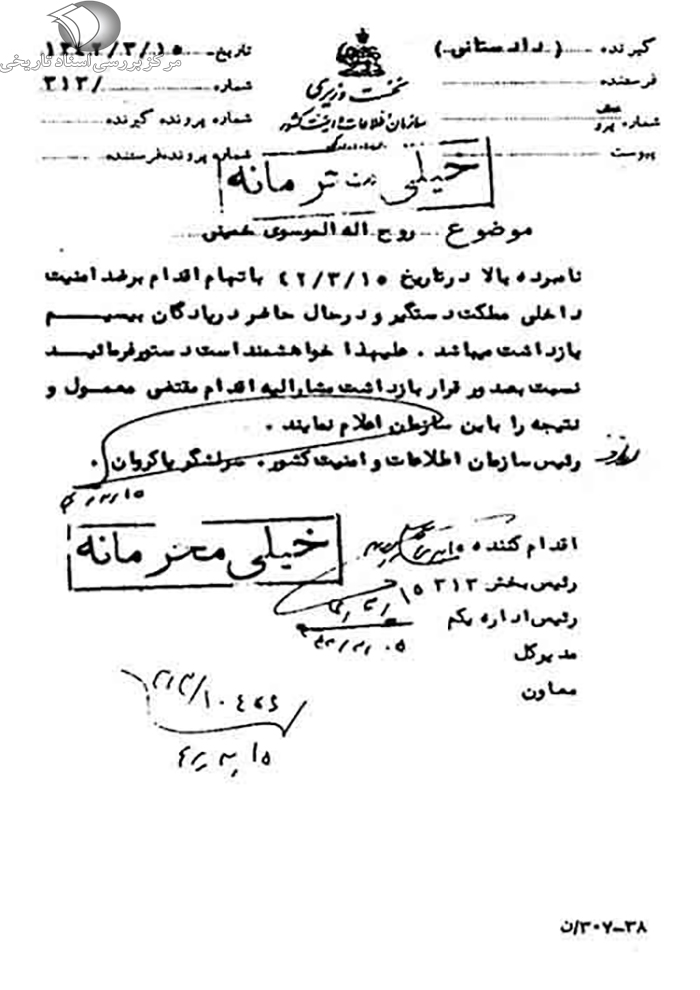 مرکز بررسی اسناد تاریخی
گیرنده ( دادستانی )
تاریخ ۱۳۴۲/۳/۱۵
فرستنده
شماره /۳۱۲
نخست وزیری
سازمان اطلاعات و امنیت کشور
شماره پرونده گیرنده
پیوست
شماره پرونده فرستنده
خیلی محرمانه
موضوع روح اله الموسوی خمینی
نامبرده بالا در تاریخ ۴۲/۳/۱۵ باتهام اقدام بر ضد امنیت
داخلی مملکت دستگیر و در حال حاضر در پادگان بیسیم
بازداشت میباشد . علیهذا خواهشمند است دستور فرمائید
نسبت بصدور قرار بازداشت مشارالیه اقدام مقتضی معمول و
نتیجه را باین سازمان اعلام نمایند .
رئیس سازمان اطلاعات و امنیت کشور . سرلشگر پاکروان .
خیلی محرمانه
اقدام کننده
رئیس بخش ۳۱۲
رئیس اداره یکم
مدیر کل
معاون
۳۰۷-۳۸/ن